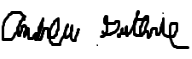 Andrew Guthrie